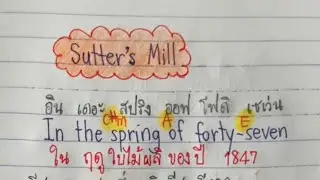 Sutter's Mill
อิน เดอะ สปริง ออฟ โฟติ เซเว่น
C#m A E
In the spring of forty-seven
ใน ฤดู ใบไม้ผลิ ของ ปี 1847